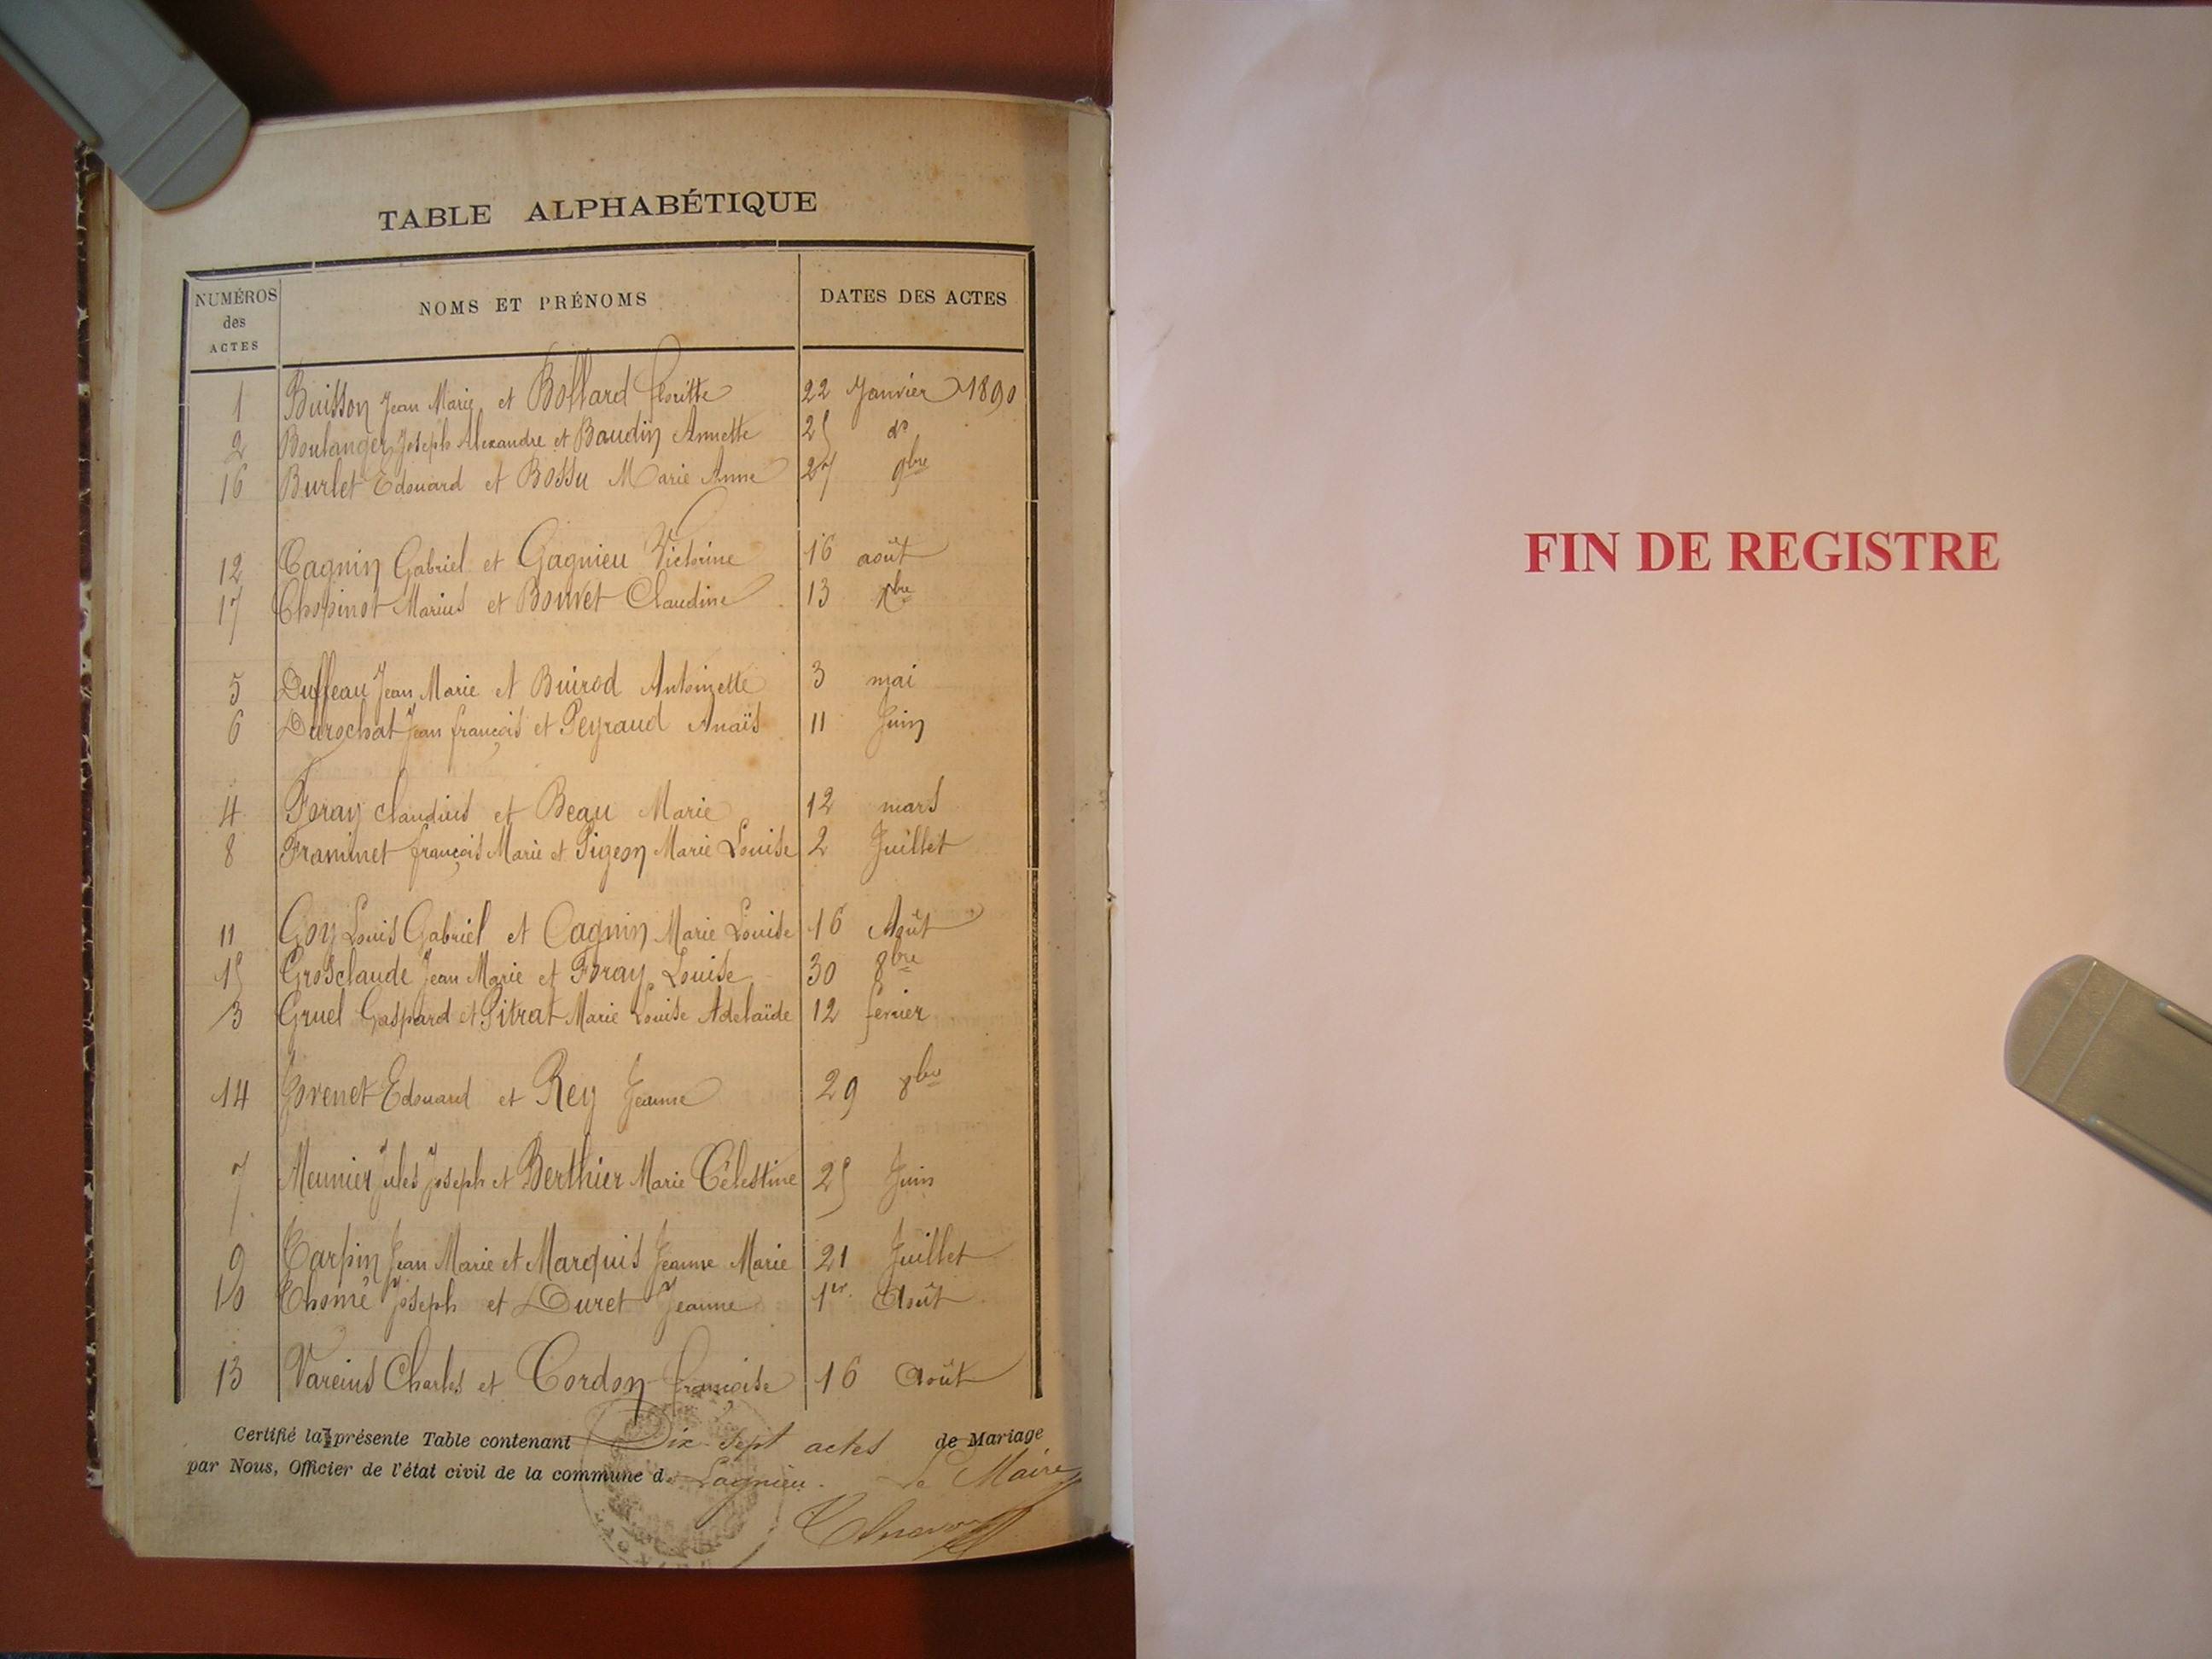 TABLE ALPHABÉTIQUE
NUMÉROS des ACTES NOMS ET PRÉNOMS DATES DES ACTES
1 Buisson Jean Marie et Bollard Floritte 22 Janvier 1890
2 Boulanger Joseph Alexandre et Baudin Annette 25 do
16 Burlet Edouard et Bossu Marie Anne 27 9bre
12 Cagnin Gabriel et Gagnieu Victorine 16 août
17 Chopinot Marius et Bouvet Claudine 13 Xbre
5 Duffeau Jean Marie et Buirod Antoinette 3 mai
6 Durochat Jean françois et Peyraud Anaïs 11 Juin
4 Foray claudius et Beau Marie 12 mars
8 Framinet françois Marie et Pigeon Marie Louise 2 Juillet
11 Goy Louis Gabriel et Cagnin Marie Louise 16 Août
15 Grosclaude Jean Marie et Foray Louise 30 8bre
3 Gruel Gaspard et Pitrat Marie Louise Adelaïde 12 fevrier
14 Jovenet Edouard et Rey Jeanne 29 8bre
7 Meunier Jules Joseph et Berthier Marie Célestine 25 Juin
9 Tarpin Jean Marie et Marquis Jeanne Marie 21 Juillet
10 Thomé Joseph et Duret Jeanne 1er Août
13 Vareius Charles et Cordon françoise 16 Août
Certifié la présente Table contenant Dix-sept actes de Mariage
par Nous, Officier de l'état civil de la commune de Lagnieu. Le Maire
FIN DE REGISTRE